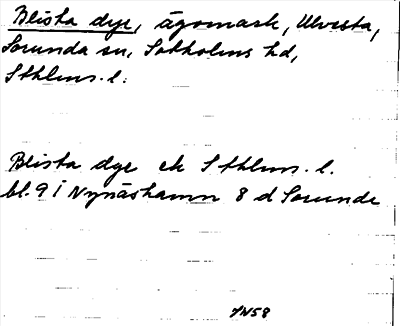 Blista dye, ägomark, Ulvsta,
Sorunda sn, Sotholms hd,
Sthlms. l.
Blista dye ek Sthlms. l.
bl. 9 i Nynäshamn 8 d Sorunda
JN58